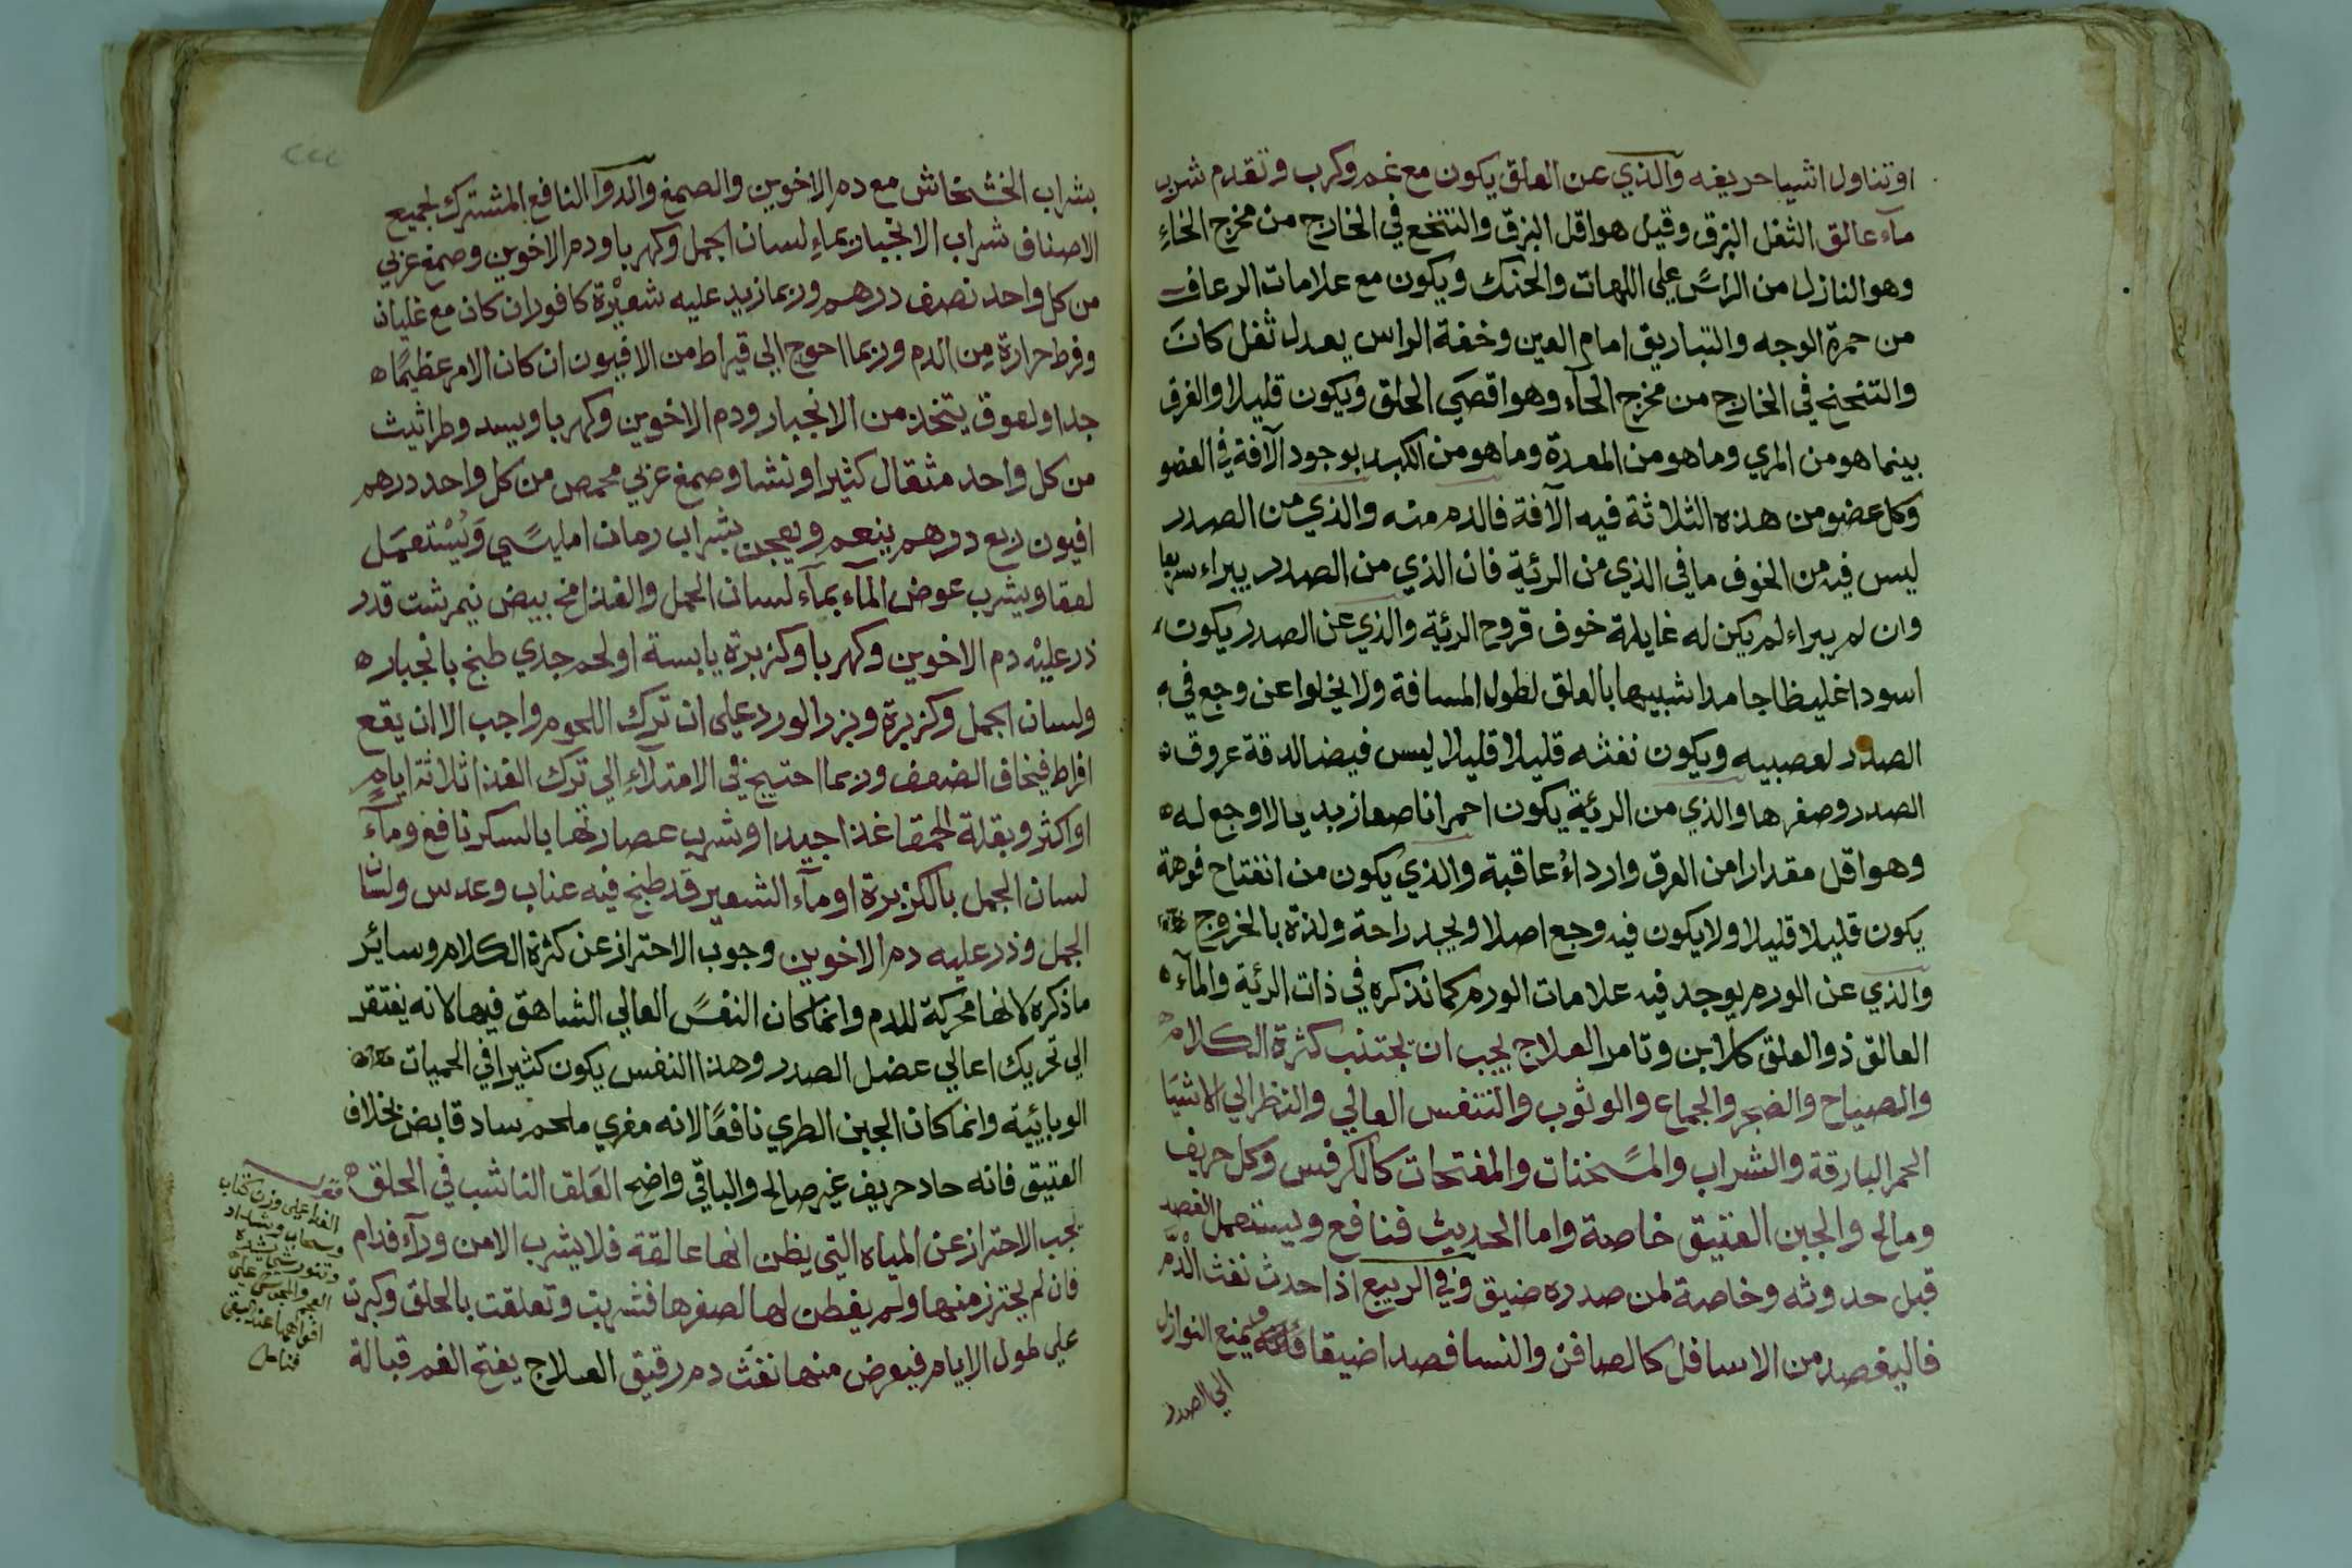 او تناول اشيا حريفه والذي عن العلق يكون مع غم وكرب وتقدم شرب
مآء عالق الثفل البزق وقيل هو اقل البزق والتنخع في الخارج من مخرج الخاءِ
وهو النازل من الراسَ علي اللهات والحنك ويكون مع علامات الرعاف
من حمرة الوجه والتباريق امام العين وخفة الراس بعد ثفل كانَ
والتنحنح في الخارج من مخرج الحآء وهو اقصَي الحلق ويكون قليلا والفرق
بينما هو من المري وما هو من المعدة وما هو من الكبد بوجود الآفة في العضو
وكل عضو من هذه الثلاثة فيه الآفة فالدم منه والذي من الصدر
ليس فيه من الخوف ما في الذي من الرئية فان الذي من الصدر يبراء سريعا
وان لم يبراء لم يكن له غايلة خوف قروح الرئية والذي عن الصدر يكون
اسودا غليظا جامدا شبيها بالعلق لطول المسافة ولا يخلوا عن وجع في
الصدر لعصبيه ويكون نفثه قليلا قليلا ليس فيضا لدقة عروق
الصدر وصغرها والذي من الرئية يكون احمرا ناصعا زبديا لا وجع له
وهو اقل مقدارا من العرق وارداءُ عاقبة والذي يكون من انفتاح فوهة
يكون قليلا قليلا ولا يكون فيه وجع اصلا ويجد راحة ولذة بالخروج
والذي عن الورم يوجد فيه علامات الورم كما نذكره في ذات الرئية والمآء
العالق ذو العلق كلابن وتامر العلاج يجب ان يجتنب كثرة الكلام
والصياح والضجر والجماع والوثوب والتنفس العالي والنظر الي الاشيَا
الحمر البارقة والشراب والمسَخنات والمفتحات كالكرفس وكل حريف
ومالح والجبن العتيق خاصة واما الحديث فنافع ويستعمل الفصد
قبل حدوثه وخاصة لمن صدره ضيق وفي الربيع اذا حدث نفث الدَّم
فاليفصد من الاسافل كالصافن والنسا فصدا ضيقا فانه يمنع النوازل
الي الصدر
بشراب الخشخاش مع دم الاخوين والصمغ والدوآ النافع المشترك لجميع
الاصناف شراب الانجبار بماءِ لسان الجمل وكهربا ودم الاخوين وصمغ عربي
من كل واحد نصف درهم وربما زيد عليه شعيْرة كافور ان كان مع غليان
وفرط حرارة مِن الدم وربما احوج الي قيراط من الافيون ان كان الامر عظيمًا
جدا ولعوق يتخذ من الانجبار ودم الاخوين وكهربا وبسد وطراثيث
من كل واحد مثقال كثيرا ونشا وصمغ عربي محمص من كل واحد درهم
افيون ربع درهم ينعم ويعجن بشراب رمان امليسَي وَيُسْتعمَل
لعقا ويشرب عوض المآء بمآء لسان الحمل والغذا مح بيض نيمرشت قدر
ذر عليْه دم الاخوين وكهربا وكزبرة يابسة او لحم جدي طبخ بانجبار
ولسان الجمل وكزبرة وبزر الورد علي ان ترك اللحوم واجب الا ان يقع
افراط فيخاف الضعف وربما احتيج في الامتلاءِ الي ترك الغذا ثلاثة ايامٍ
او اكثر وبقلة الحمقا غذا جيدا وشرب عصارتها بالسكر نافع ومآء
لسان الجمل بالكزبرة او مآء الشعير قد طبخ فيه عناب وعدس ولسان
الجمل وذر عليه دم الاخوين وجوب الاحتراز عن كثرة الكلام وسائر
ما ذكره لانها محركة للدم وانما كان النفسَ العالي الشاهق فيها لانه يفتقر
الي تحريك اعالي عضل الصدر وهذا النفس يكون كثيرا في الحميات
الوبائية وانما كان الجبن الطري نافعًا لانه مغري ملحم ساد قابض بخلاف
العتيق فانه حاد حريف غير صالح والباقي واضح العَلق الناشب في الحلق
يجب الاحتراز عن المياه التي يظن انها عالقة فلا يشرب الا من ورآء فدام
فان لم يحترز منها ولم يفطن لها لصغرها فشربت وتعلقت بالحلق وكبرت
علي طول الايام فيعرض منها نفث دم رقيق العلاج يفتح الفم قبالة
الفدا علي وزن كتاب
وسحاب وشداد
وتنور شي يشده
العجم والمجوس علي
افواهها عند السقي